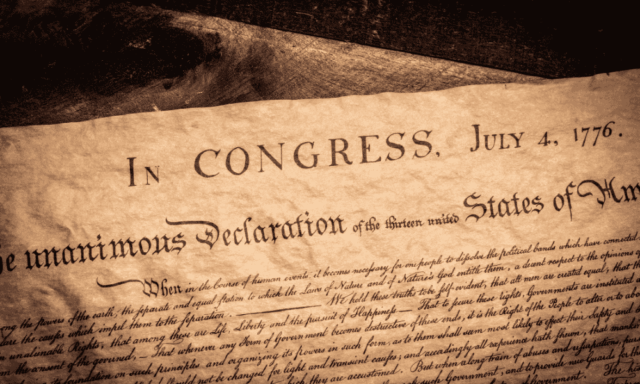 In CONGRESS, July 4, 1776.
he unanimous Declaration of the thirteen united States of Am
When in the Course of human events, it becomes necessary for one people to dissolve the political bands which have connected
ng the powers of the earth, the separate and equal station to which the Laws of Nature and of Nature's God entitle them, a decent respect to the opinions of
the causes which impel them to the separation. We hold these truths to be self-evident, that all men are created equal, that
unalienable Rights, that among these are Life, Liberty and the pursuit of Happiness. — That to secure these rights, Governments are instituted
the consent of the governed, — That whenever any Form of Government becomes destructive of these ends, it is the Right of the People to alter or to
foundation on such principles and organizing its powers in such form, as to them shall seem most likely to effect their Safety and
should not be changed for light and transient causes; and accordingly all experience hath shewn, that
which they are accustomed. But when a long train of abuses and usurpations
such Government, and to provide new Guards for